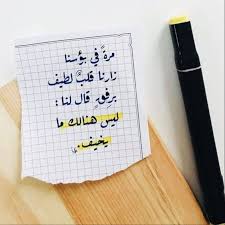 مرةً في بؤسنا
زارنا قلبٌ لطيف
برفقٍ قال لنا :
ليس هنالك ما
يخيف .